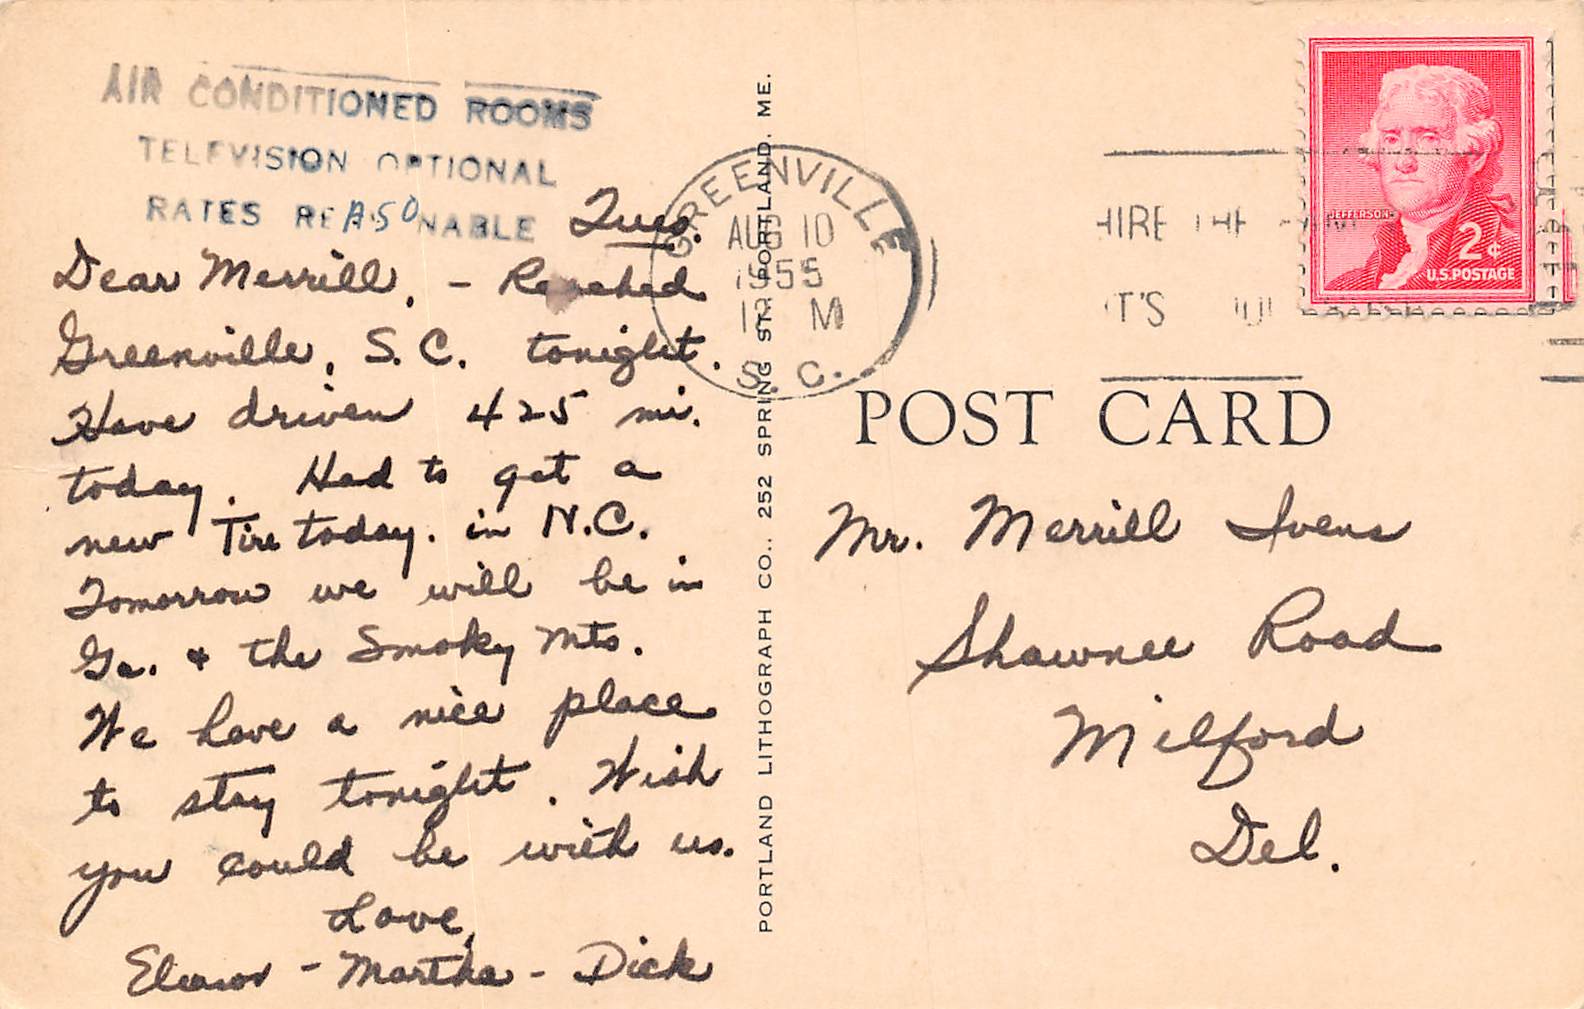 AIR CONDITIONED ROOMS
TELEVISION OPTIONAL
RATES REASONABLE
Tues.
Dear Merrill, - Reached
Greenville, S.C. tonight.
Have driven 425 mi.
today. Had to get a
new Tire today. in N.C.
Tomorrow we will be in
Ga. & the Smoky Mts.
We have a nice place
to stay tonight. Wish
you could be with us.
Love,
Eleanor - Martha - Dick
PORTLAND LITHOGRAPH CO., 252 SPRING ST., PORTLAND, ME.
GREENVILLE
AUG 10
1955
12 M
S. C.
HIRE THE
IT'S
JEFFERSON
2¢
U.S. POSTAGE
POST CARD
Mr. Merrill Ivens
Shawnee Road
Milford
Del.